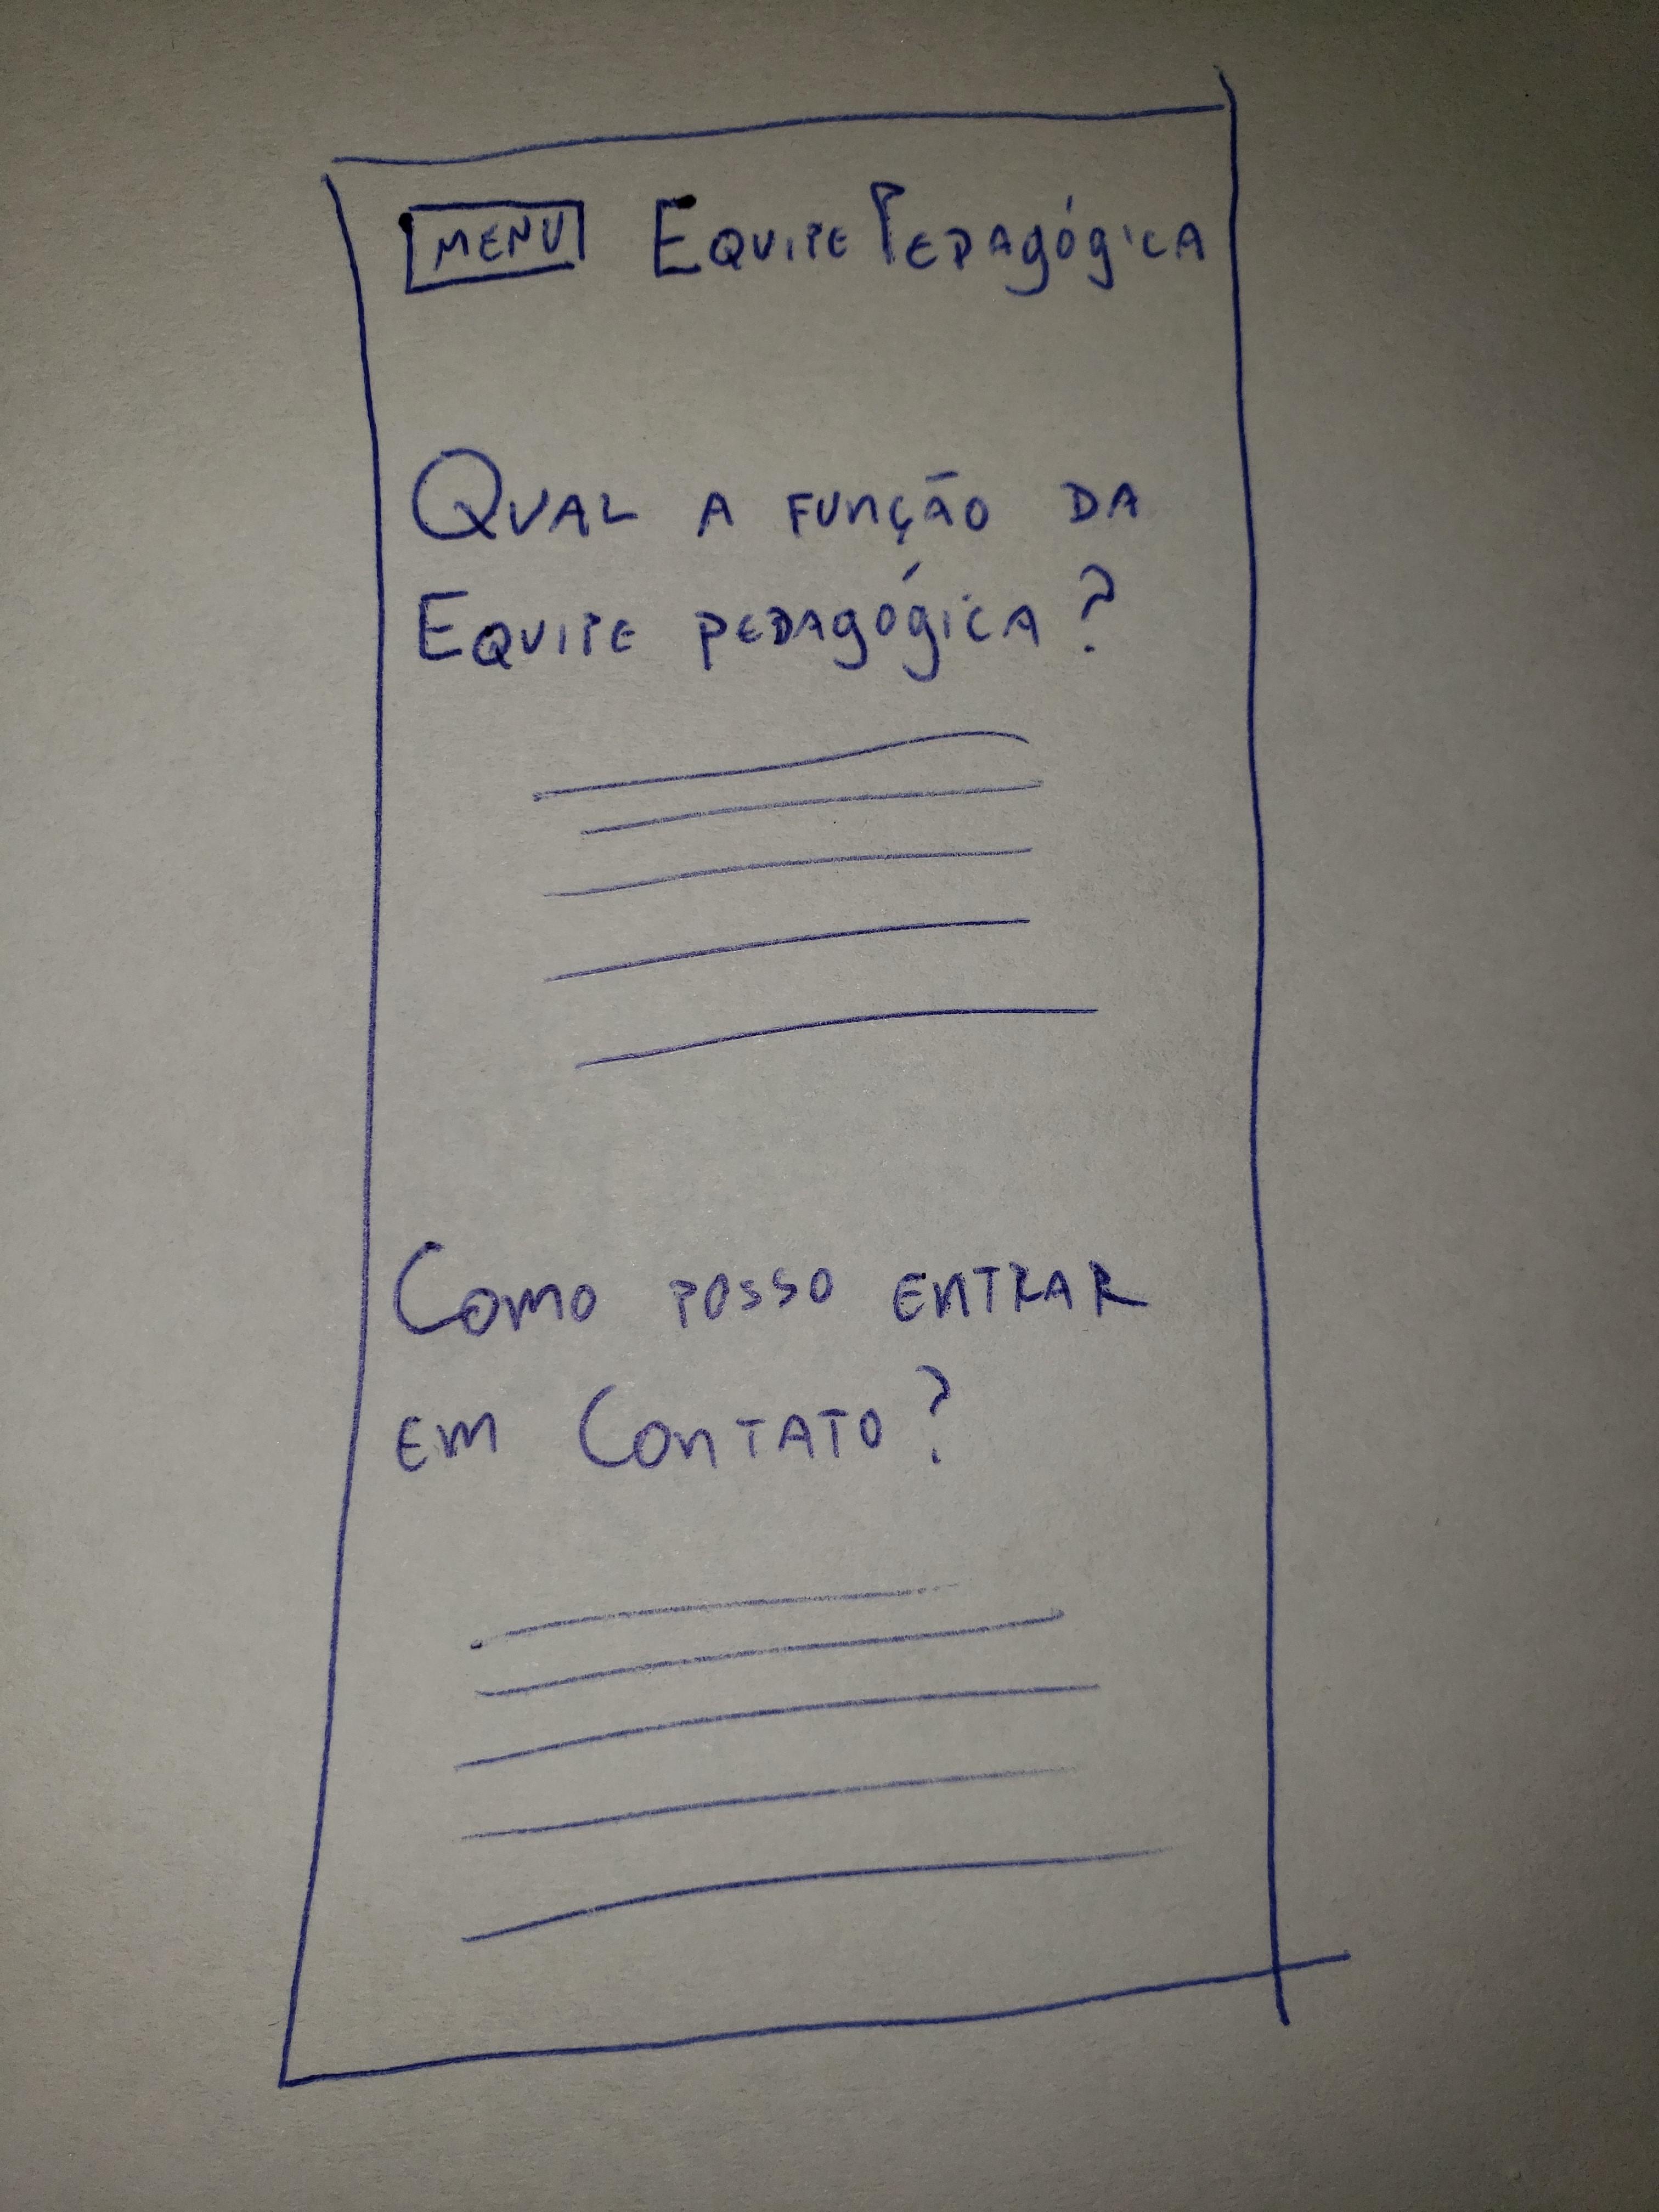 MENU Equipe Pedagógica
Qual a função da
Equipe pedagógica?
Como posso entrar
em Contato?